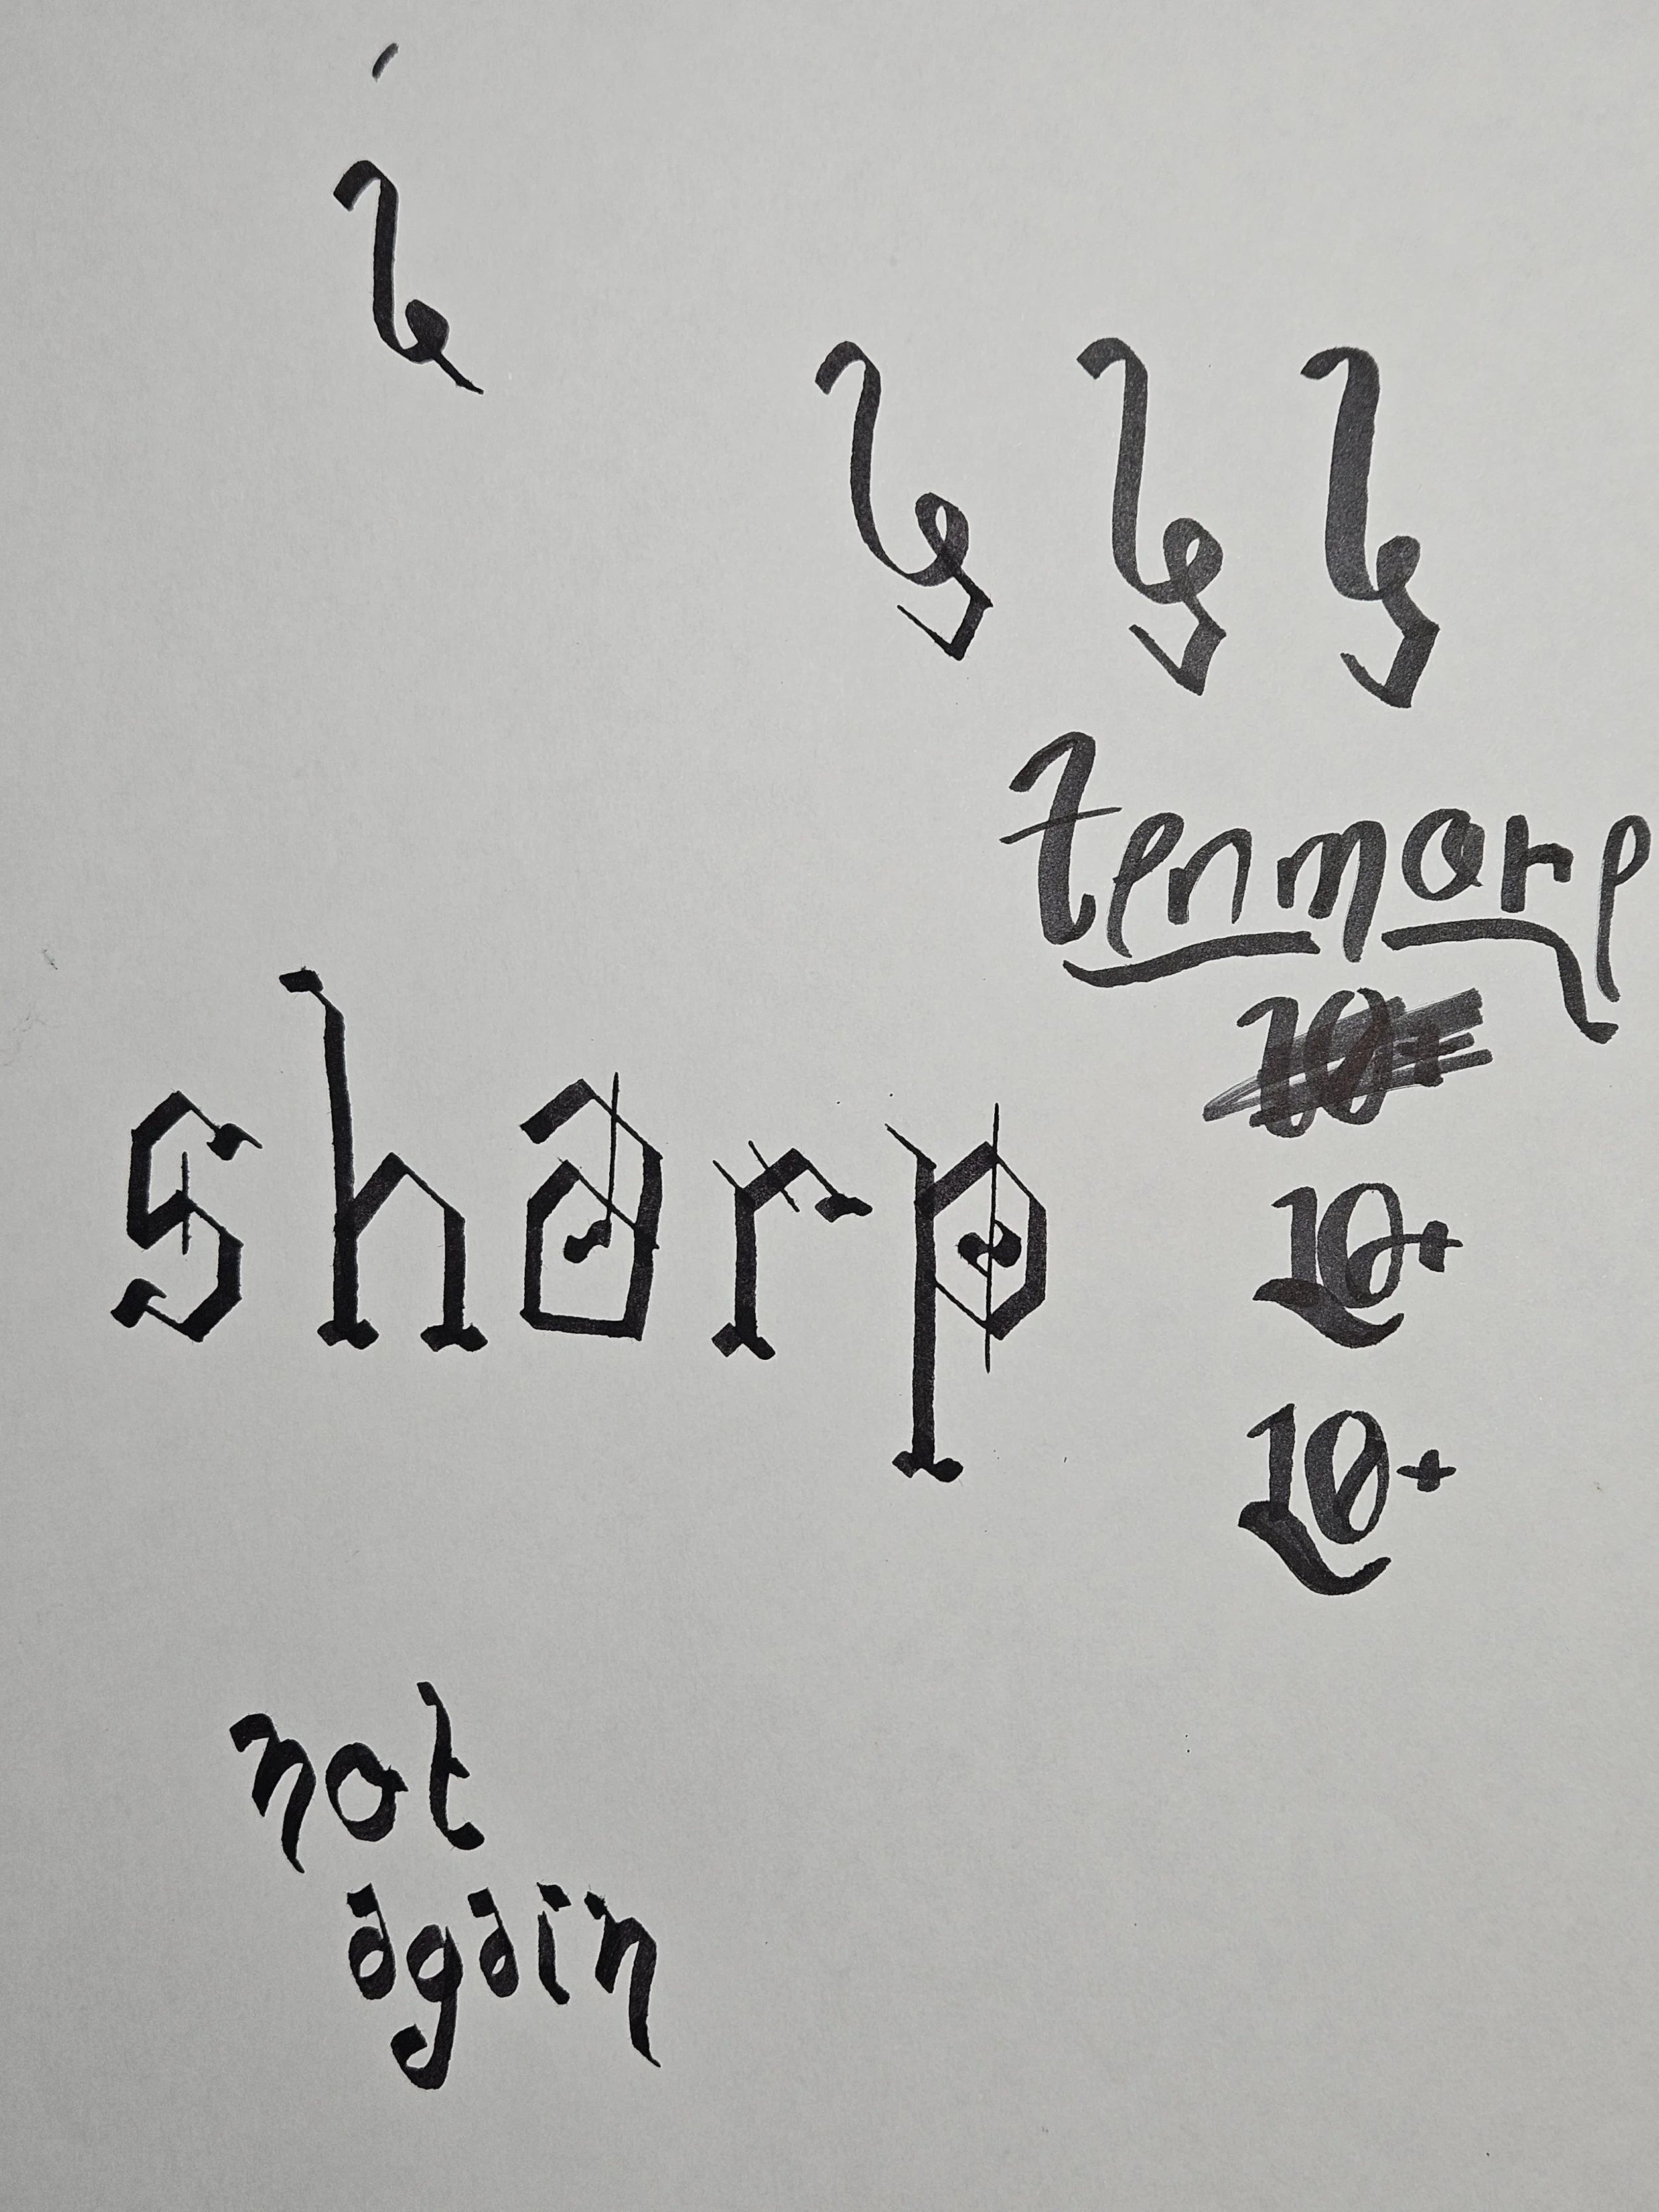 tenmore
10+
10+
sharp
10+
not
again